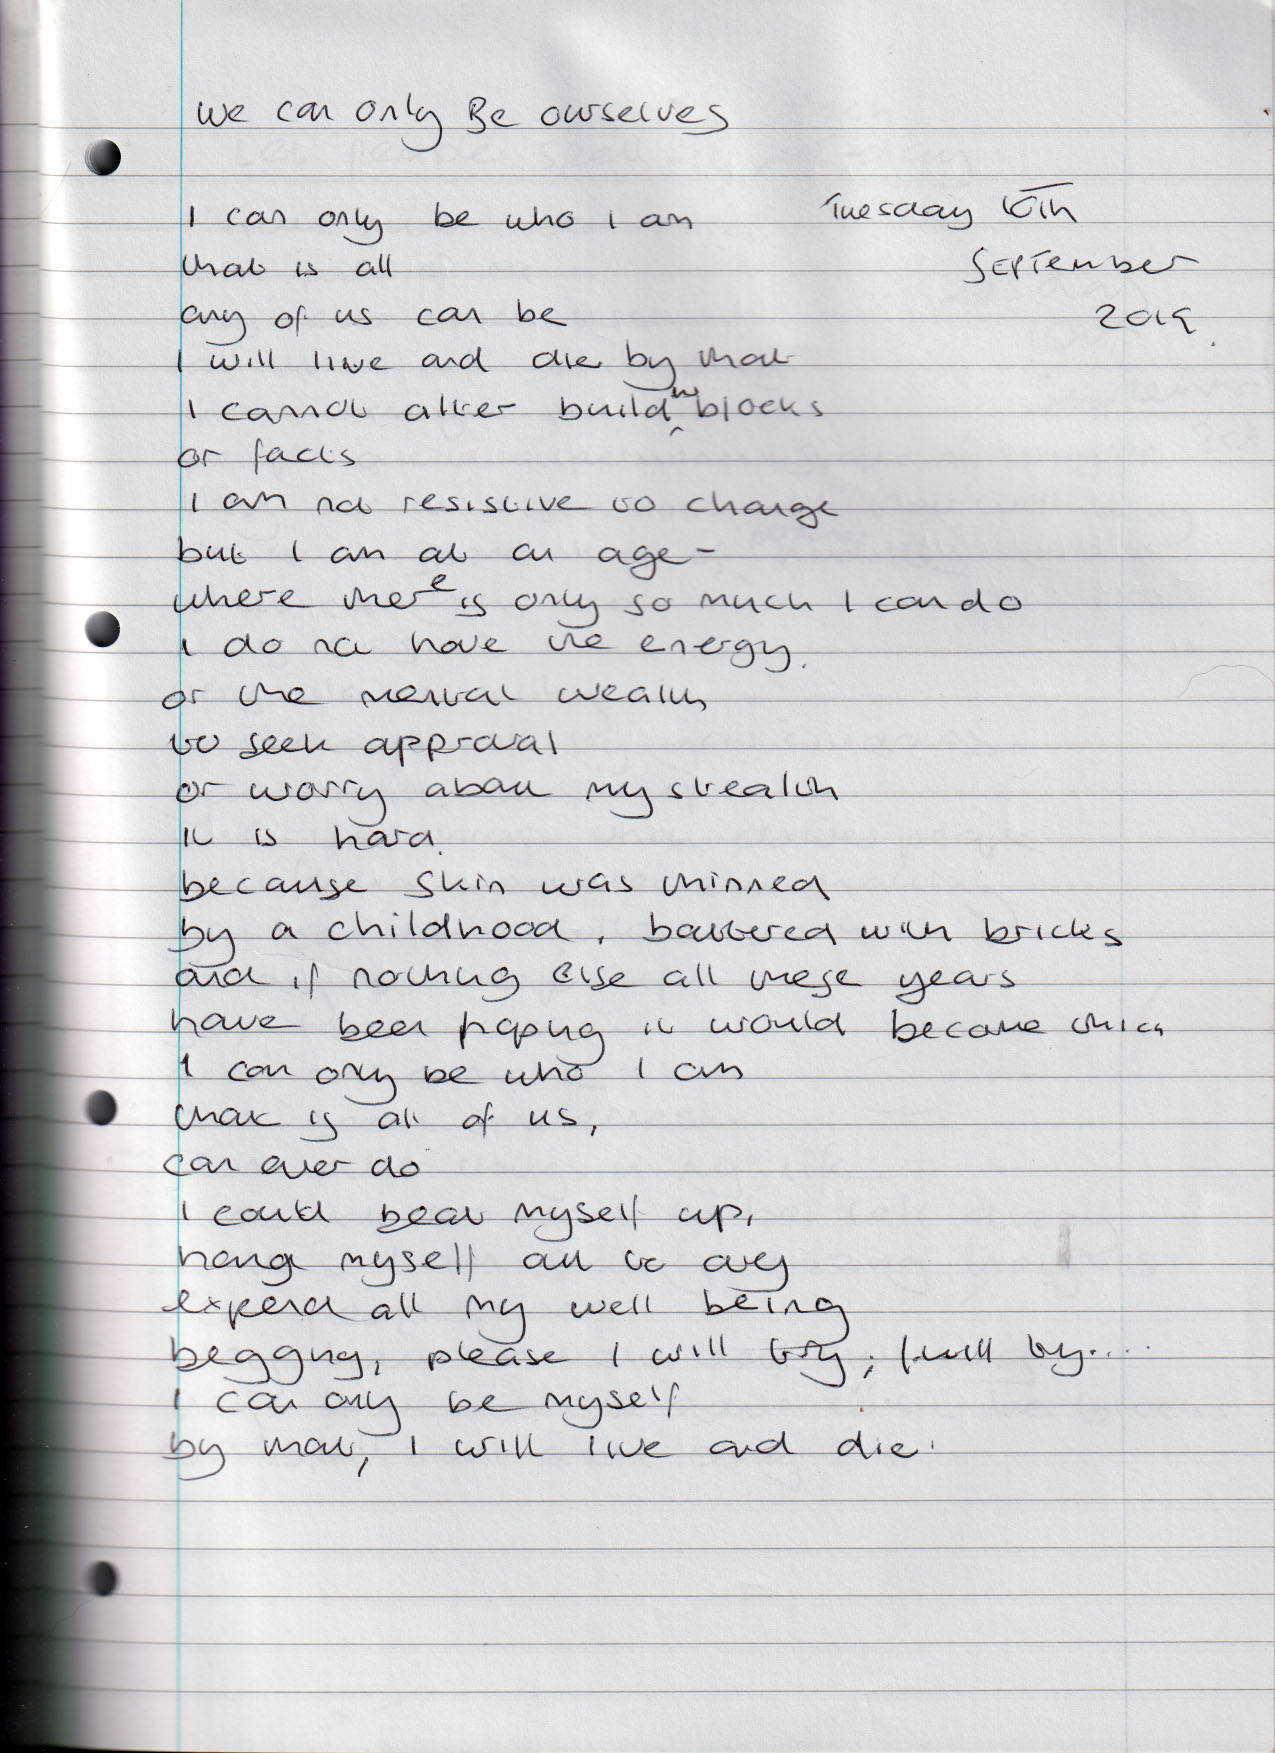 We can only Be ourselves
I can only be who I am
Tuesday 10th
September
2019.
that is all
any of us can be
I will live and die by that
I cannot alter building blocks
or facts
I am not resistive to change
but I am at an age -
where there is only so much I can do
I do not have the energy.
or the mental wealth
to seek approval
or worry about my stealth
it is hard.
because skin was thinned
by a childhood, battered with bricks
and if nothing else all these years
have been hoping it would become thick
I can only be who I am
that is all of us,
can ever do
I could beat myself up,
hang myself out to dry
expend all my well being
begging, please I will try, I will try....
I can only be myself
by that, I will live and die.